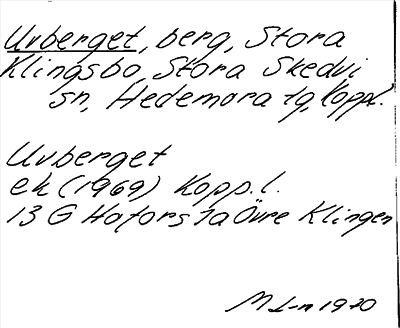 Uvberget, berg, Stora
Klingsbo, Stora Skedvi
sn, Hedemora tg, Koppl.
Uvberget
ek (1969) Kopp.l.
13 G Hofors 7a Övre Klingen
1970